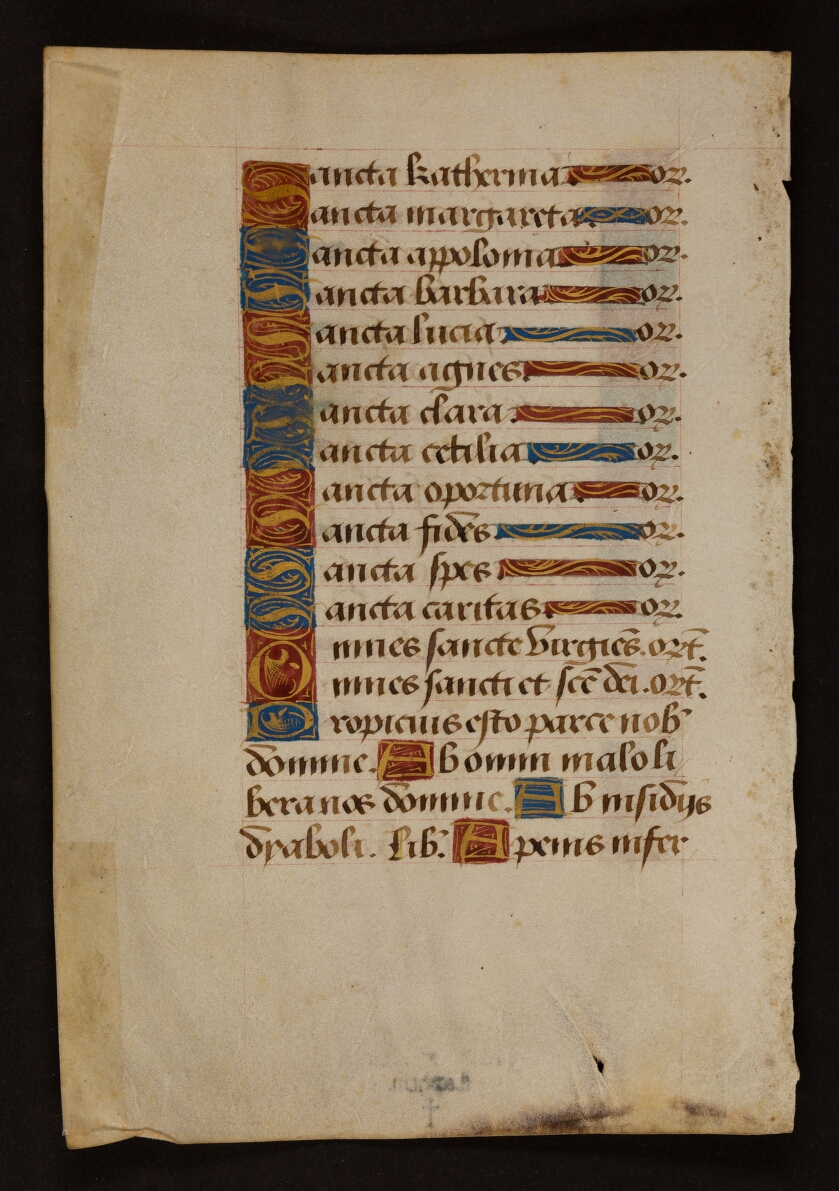 Sancta katherina or.
Sancta margareta or.
Sancta appolonia or.
Sancta barbara or.
Sancta lucia or.
Sancta agnes or.
Sancta clara or.
Sancta cecilia or.
Sancta oportuna or.
Sancta fides or.
Sancta spes or.
Sancta caritas or.
Omnes sancte virgīes. orēt.
Omnes sancti et scē dei. orēt.
Propicius esto parce nob̄
domine. Ab omni malo li
bera nos domine. Ab insidijs
dyaboli. Lib̄. A penis infer